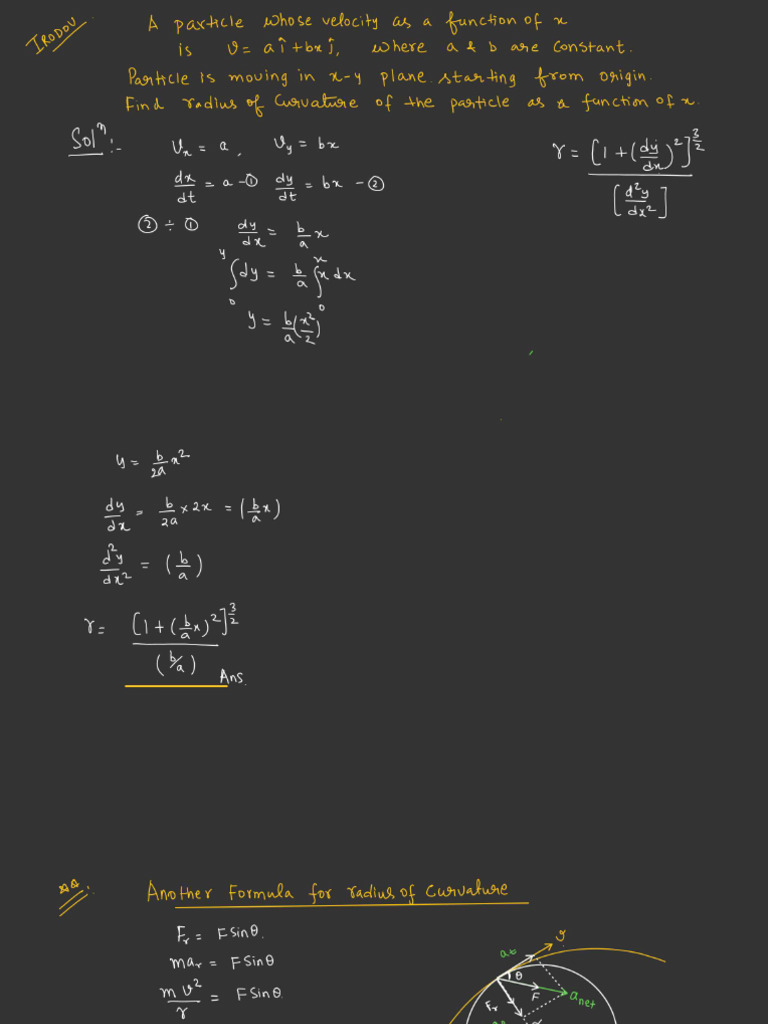 IRODOV
A particle whose velocity as a function of x
is v = a î + bx ĵ, where a & b are constant.
Particle is moving in x-y plane starting from origin.
Find radius of curvature of the particle as a function of x.
Solⁿ:-
Vx = a, Vy = bx
r = [1+(dy/dx)²]^(3/2) / [d²y/dx²]
dx/dt = a -① dy/dt = bx -②
② ÷ ① dy/dx = b/a x
∫₀^y dy = b/a ∫₀^x x dx
y = b/a (x²/2)
y = b/2a x²
dy/dx = b/2a × 2x = (b/a x)
d²y/dx² = (b/a)
r = [1+(b/a x)²]^(3/2) / (b/a) Ans.
Another Formula for radius of curvature
Fr = F sinθ.
mar = F sinθ
mv²/r = F sinθ.
at v
θ
Fr F anet